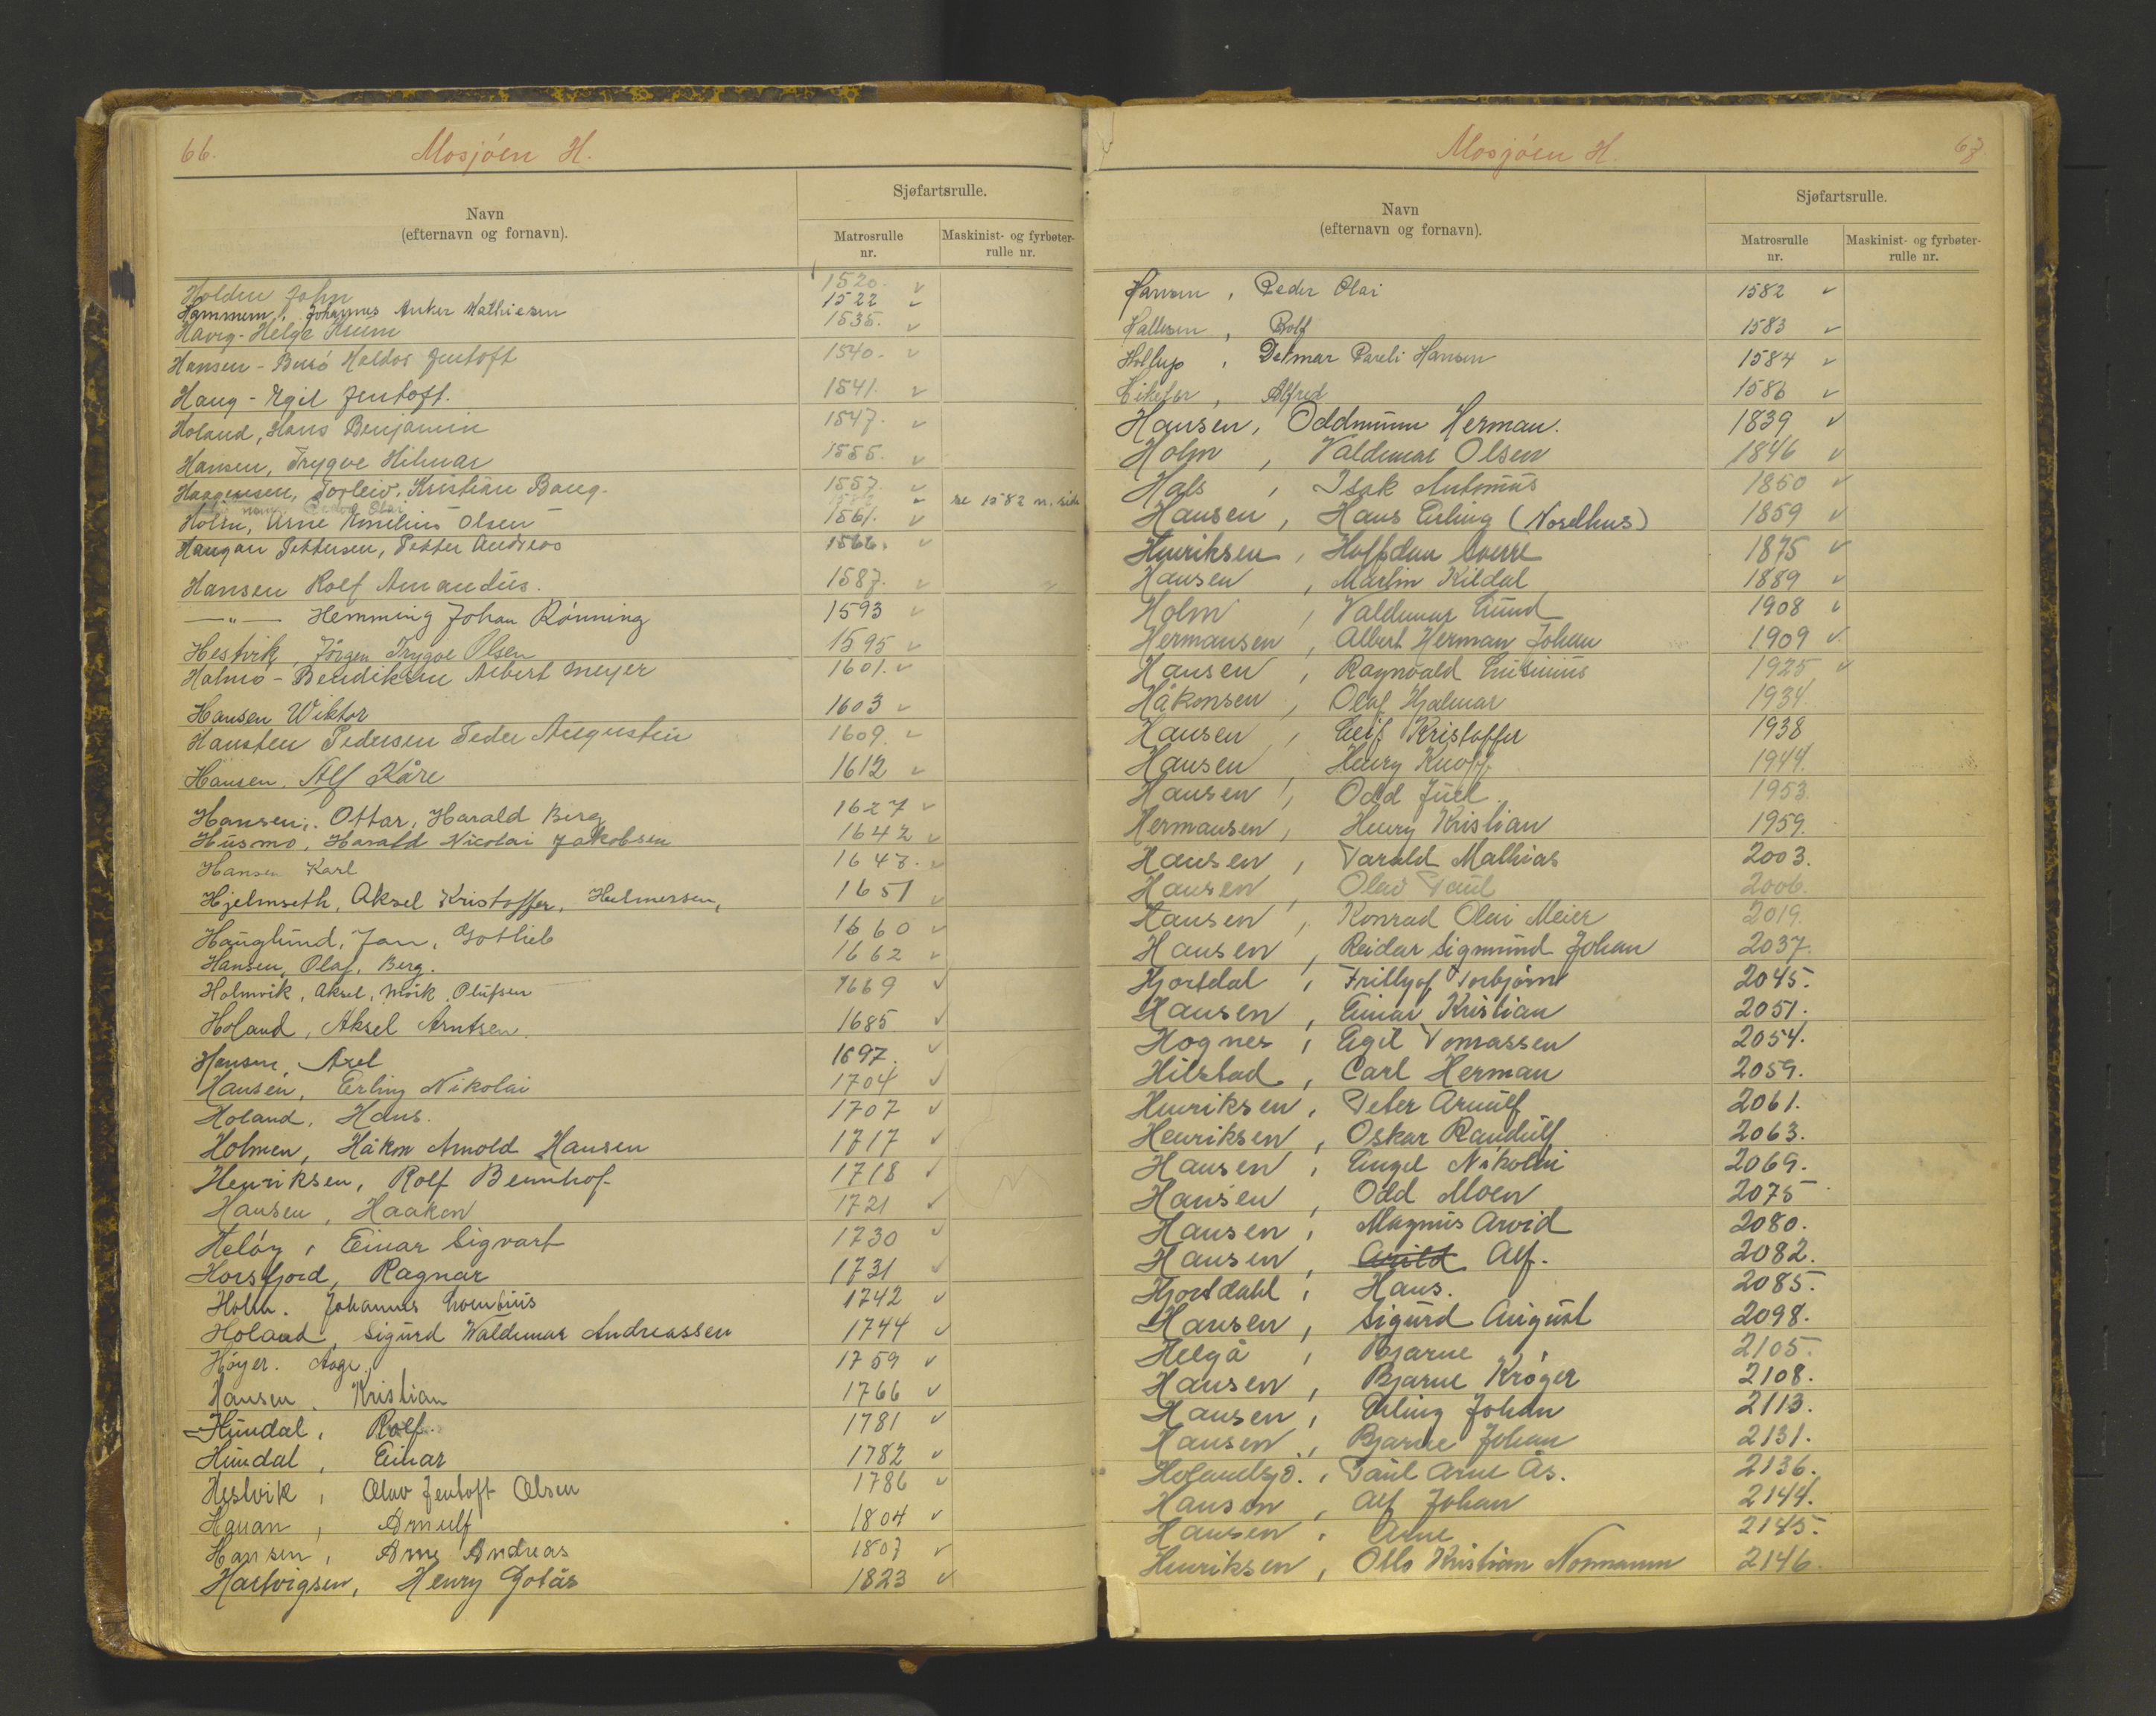 66.
Mosjöen H.
Navn
(efternavn og fornavn).
Sjøfartsrulle.
Matrosrulle
nr.
Maskinist- og fyrbøter-
rulle nr.
Holden John 1520. v
Hammem, Johannes Anker Mathiesen 1522 v
Havig - Helge Krum 1535. v
Hansen - Busö Haldor Jentoft 1540. v
Haug - Egil Jentoft. 1541. v
Holand, Hans Benjamin 1547. v
Hansen, Trygve Hilmar 1555. v
Haagensen, Torleiv, Kristian Baug. 1557. v
Peder Olai v se 1582 n. side
Holm, Arne Emelius Olsen 1561. v
Haugan Pettersen, Petter Andreas 1566. v
Hansen Rolf Amandus. 1587. v
—"— Hemming Johan Rönning 1593 v
Hestvik, Jörgen Trygve Olsen 1595 v
Holmö - Bendiksen Albert Meyer 1601. v
Hansen Wiktor 1603 v
Hansten Pedersen Peder Augustin 1609. v
Hansen. Alf Kåre 1612 v
Hansen, Ottar, Harald Berg 1627 v
Husmo, Harald Nicolai Jakobsen 1642 v
Hansen Karl 1647. v
Hjelmseth, Aksel Kristoffer, Helmersen, 1651 v
Hauglund, Jan, Gotlieb 1660 v
Hansen, Olaf, Berg. 1662 v
Holmvik, Aksel, Mörk, Olufsen 1669 v
Holand, Aksel Arntsen. 1685 v
Hansen, Axel 1697. v
Hansen, Erling Nikolai 1704 v
Holand, Hans. 1707 v
Holmen, Håkon Arnold Hansen 1717 v
Henriksen, Rolf Bernhof 1718 v
Hansen, Haakon 1721 v
Helöy, Einar Sigvart 1730 v
Horsfjord, Ragnar 1731 v
Holm. Johannes Lorentius 1742 v
Holand, Sigurd Waldemar Andreassen 1744 v
Höyer. Aage. 1759 v
Hansen. Kristian 1766 v
Hundal, Rolf. 1781 v
Hundal, Einar 1782 v
Hestvik, Olav Jentoft Olsen 1786 v
Hauan, Arnulf 1804 v
Hansen, Arne Andreas 1807 v
Hartvigsen, Henry Gotås 1823 v
Mosjöen H. 67
Navn
(efternavn og fornavn).
Sjøfartsrulle.
Matrosrulle
nr.
Maskinist- og fyrbøter-
rulle nr.
Hansen, Peder Olai 1582 v
Hallesen, Rolf 1583 v
Hollup, Detmar Pareli Hansen 1584 v
Alfred 1586 v
Hansen, Oddmunn Herman. 1839 v
Holm, Valdemar Olsen 1846 v
Hals, Isak Antonius 1850 v
Hansen, Hans Erling (Nordhus) 1859 v
Henriksen, Halfdan Sverre 1875 v
Hansen, Martin Kildal 1889 v
Holm, Valdemar Lund 1908 v
Hermansen, Albert Herman Johan 1909 v
Hansen, Ragnvald 1925 v
Håkonsen, Olaf Hjalmar 1934.
Hansen, Leif Kristoffer 1938
Hansen, Henry Knoff 1944.
Hansen, Odd Juel. 1953.
Hermansen, Henry Kristian 1959.
Hansen, Harald Mathias 2003.
Hansen, Olav Paul 2006.
Hansen, Konrad Olai Meier 2019.
Hansen, Reidar Sigmund Johan 2037.
Hjortdal, Frithjof Torbjörn 2045.
Hansen, Einar Kristian 2051.
Hognes, Egil Tomassen 2054.
Hilstad, Carl Herman 2059.
Henriksen, Peter Arnulf 2061.
Henriksen, Oskar Randulf 2063.
Hansen, Engel Nikolai 2069.
Hansen, Odd Moen 2075
Hansen, Magnus Arvid 2080.
Hansen, Arild Alf. 2082.
Hjortdahl, Hans. 2085.
Hansen, Sigurd August 2098.
Helgå, Bjarne 2105.
Hansen, Bjarne Kröger 2108.
Hansen, Erling Johan 2113.
Hansen, Bjarne Johan 2131.
Holandsjö., Paul Arne Ås. 2136.
Hansen, Alf Johan 2144.
Hansen, Arne 2145.
Henriksen, Otto Kristian Normann 2146.